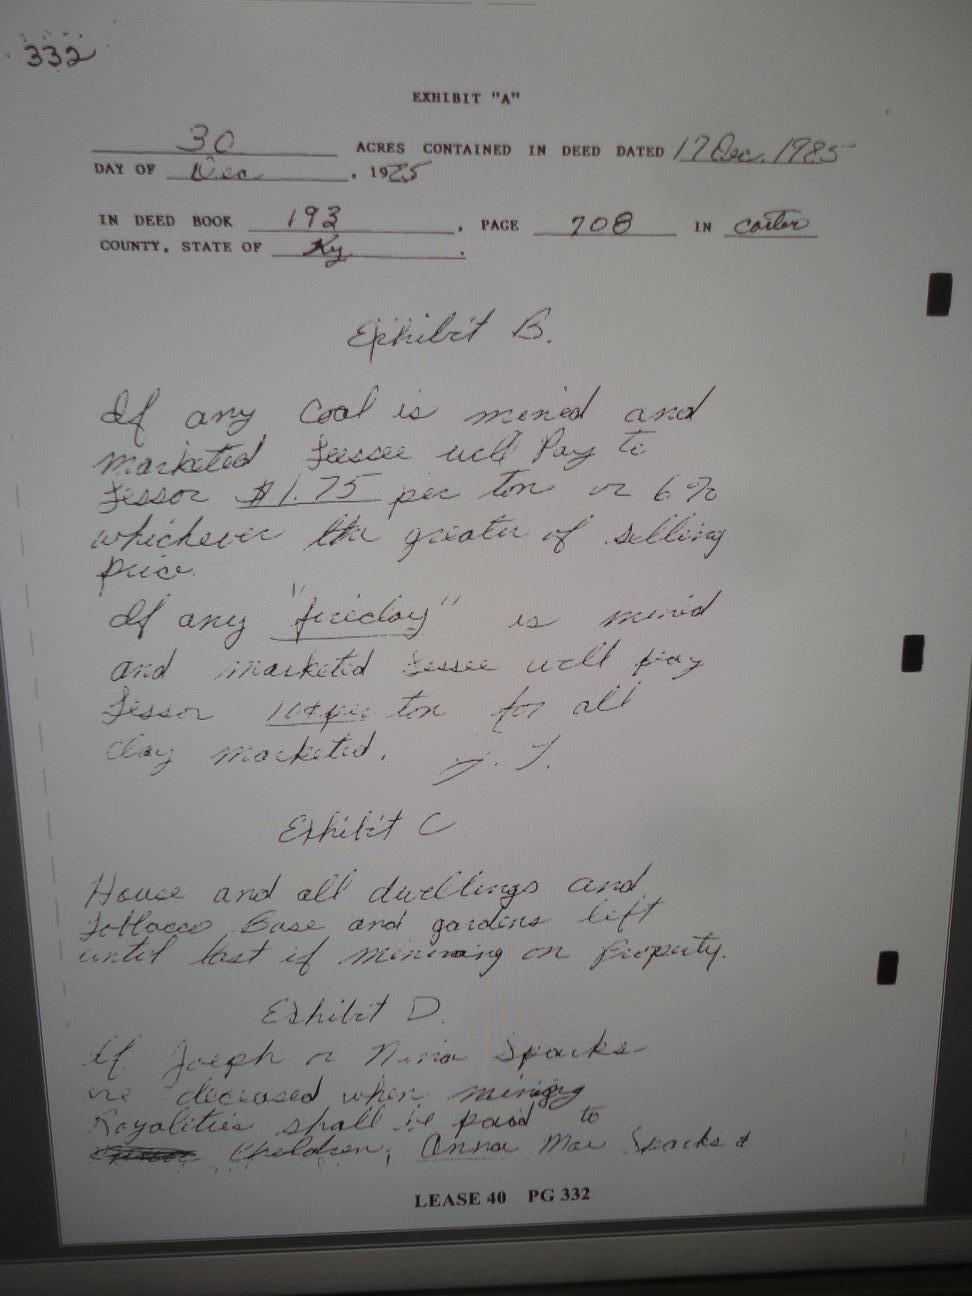 332
EXHIBIT "A"
30 ACRES CONTAINED IN DEED DATED 17 Dec. 1985
DAY OF Dec , 1985
IN DEED BOOK 193 , PAGE 708 IN Carter
COUNTY, STATE OF Ky .
Exhibit B.
If any Coal is mined and
marketed Lessee will Pay to
Lessor $1.75 per ton or 6%
whichever the greater of selling
price.
If any "fireclay" is mined
and marketed Lessee will pay
Lessor per ton for all
clay marketed.
Exhibit C
House and all dwellings and
Tobacco Base and gardens left
until last if mining on Property.
Exhibit D.
If Joeph or Nina Sparks
are deceased when mining
Royalities shall be paid to
Children; Anna Mae Sparks &
LEASE 40 PG 332